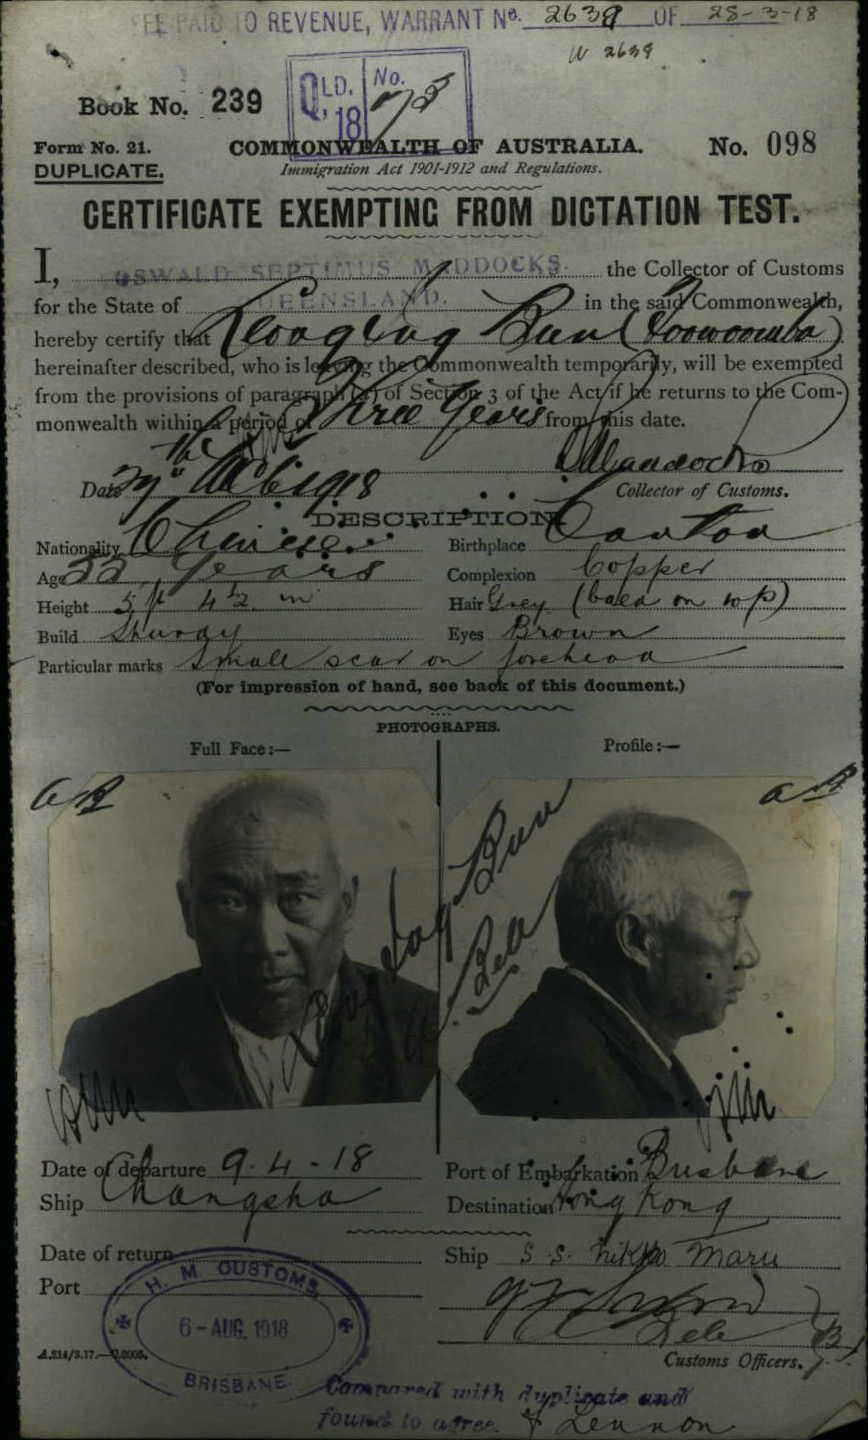 FEE PAID TO REVENUE, WARRANT No. 2639 OF 28-3-18
W 2639
Book No. 239
QLD. 18 No.
Form No. 21.
DUPLICATE.
COMMONWEALTH OF AUSTRALIA.
No. 098
Immigration Act 1901-1912 and Regulations.
CERTIFICATE EXEMPTING FROM DICTATION TEST.
I, OSWALD SEPTIMUS MADDOCKS. the Collector of Customs
for the State of QUEENSLAND. in the said Commonwealth,
hereby certify that Bun (Toowoomba)
hereinafter described, who is leaving the Commonwealth temporarily, will be exempted
from the provisions of paragraph (a) of Section 3 of the Act if he returns to the Com-
monwealth within a period of Three Years from this date.
Date 1918
OSMaddocks
Collector of Customs.
DESCRIPTION.
Nationality Chinese
Birthplace Canton
Age years
Complexion Copper
Height 5 ft 4½ in
Hair Grey (bald on top)
Build Sturdy
Eyes Brown
Particular marks Small scar on forehead
(For impression of hand, see back of this document.)
PHOTOGRAPHS.
Full Face:—
Profile:—
Bun
Date of departure 9.4.18
Port of Embarkation Brisbane
Ship Changsha
Destination Hong Kong
Date of return
Ship S.S. Nikko Maru
Port
H. M. CUSTOMS.
6-AUG. 1918
BRISBANE.
Customs Officers.
Compared with duplicate and
found to agree. Lennon